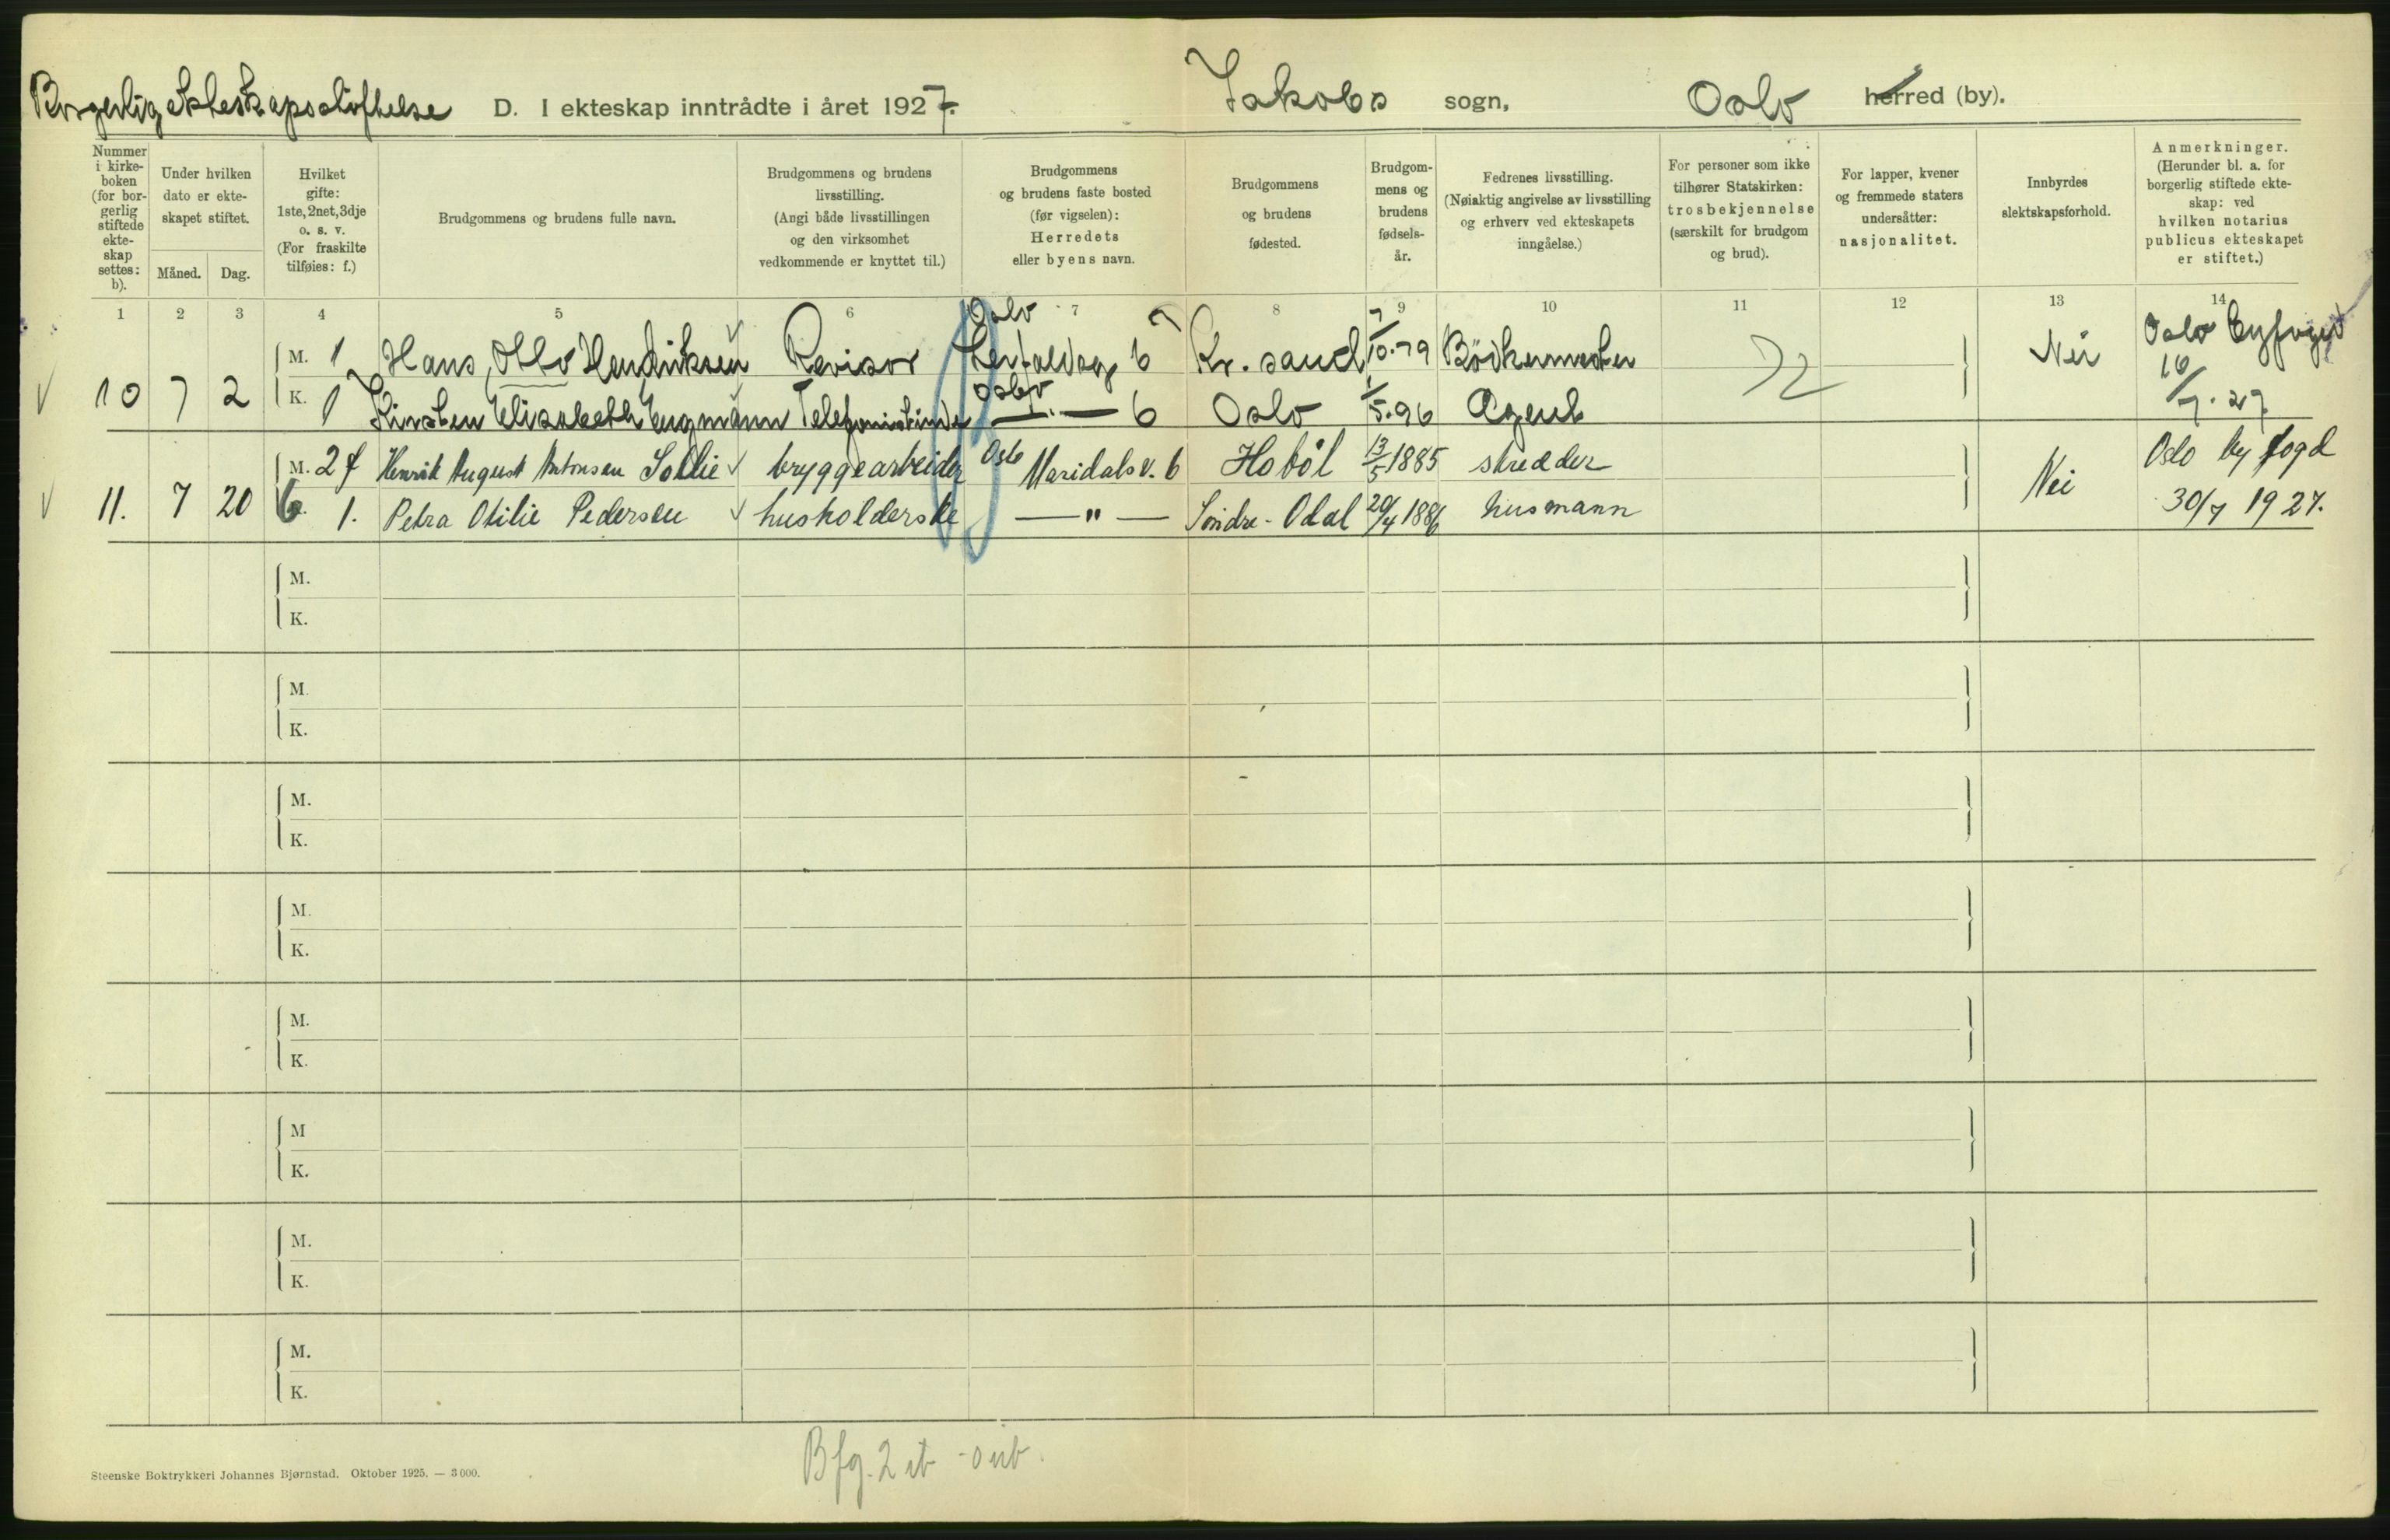 Borgerlig ekteskapsstiftelse D. I ekteskap inntrådte i året 1927. Jakobs sogn, Oslo herred (by).
Nummer i kirke-boken (for bor-gerlig stiftede ekte-skap settes: b).
Under hvilken dato er ekte-skapet stiftet.
Måned. Dag.
Hvilket gifte: 1ste, 2net, 3dje o. s. v. (For fraskilte tilføies: f.)
Brudgommens og brudens fulle navn.
Brudgommens og brudens livsstilling. (Angi både livsstillingen og den virksomhet vedkommende er knyttet til.)
Brudgommens og brudens faste bosted (før vigselen): Herredets eller byens navn.
Brudgommens og brudens fødested.
Brudgom-mens og brudens fødsels-år.
Fedrenes livsstilling. (Nøiaktig angivelse av livsstilling og erhverv ved ekteskapets inngåelse.)
For personer som ikke tilhører Statskirken: trosbekjennelse (særskilt for brudgom og brud).
For lapper, kvener og fremmede staters undersåtter: nasjonalitet.
Innbyrdes slektskapsforhold.
Anmerkninger. (Herunder bl. a. for borgerlig stiftede ekte-skap: ved hvilken notarius publicus ekteskapet er stiftet.)
1 2 3 4 5 6 7 8 9 10 11 12 13 14
10 7 2
M. 1 Hans Otto Hendriksen Revisor Oslo 6 Kr. sand 7/10.79 Bödkermester Nei Oslo Byfoged
K. 1 Kirsten Elisabeth Engmann Telefonistinde Oslo — " — 6 Oslo 1/5.96 Agent 16/7.27
11. 7 20
M. 2 f Henrik August Antonsen Sollie bryggearbeider Oslo Maridalsv. 6 Hobøl 13/5 1885 skredder Nei Oslo by fogd
6 1. Petra Otilie Pedersen husholderske — " — Söndre-Odal 20/4 1886 husmann 30/7 1927.
M.
K.
M.
K.
M.
K.
M.
K.
M.
K.
M
K.
M.
K.
M.
K.
Bfg. 2 ib - oub.
Steenske Boktrykkeri Johannes Bjørnstad. Oktober 1925. — 3000.